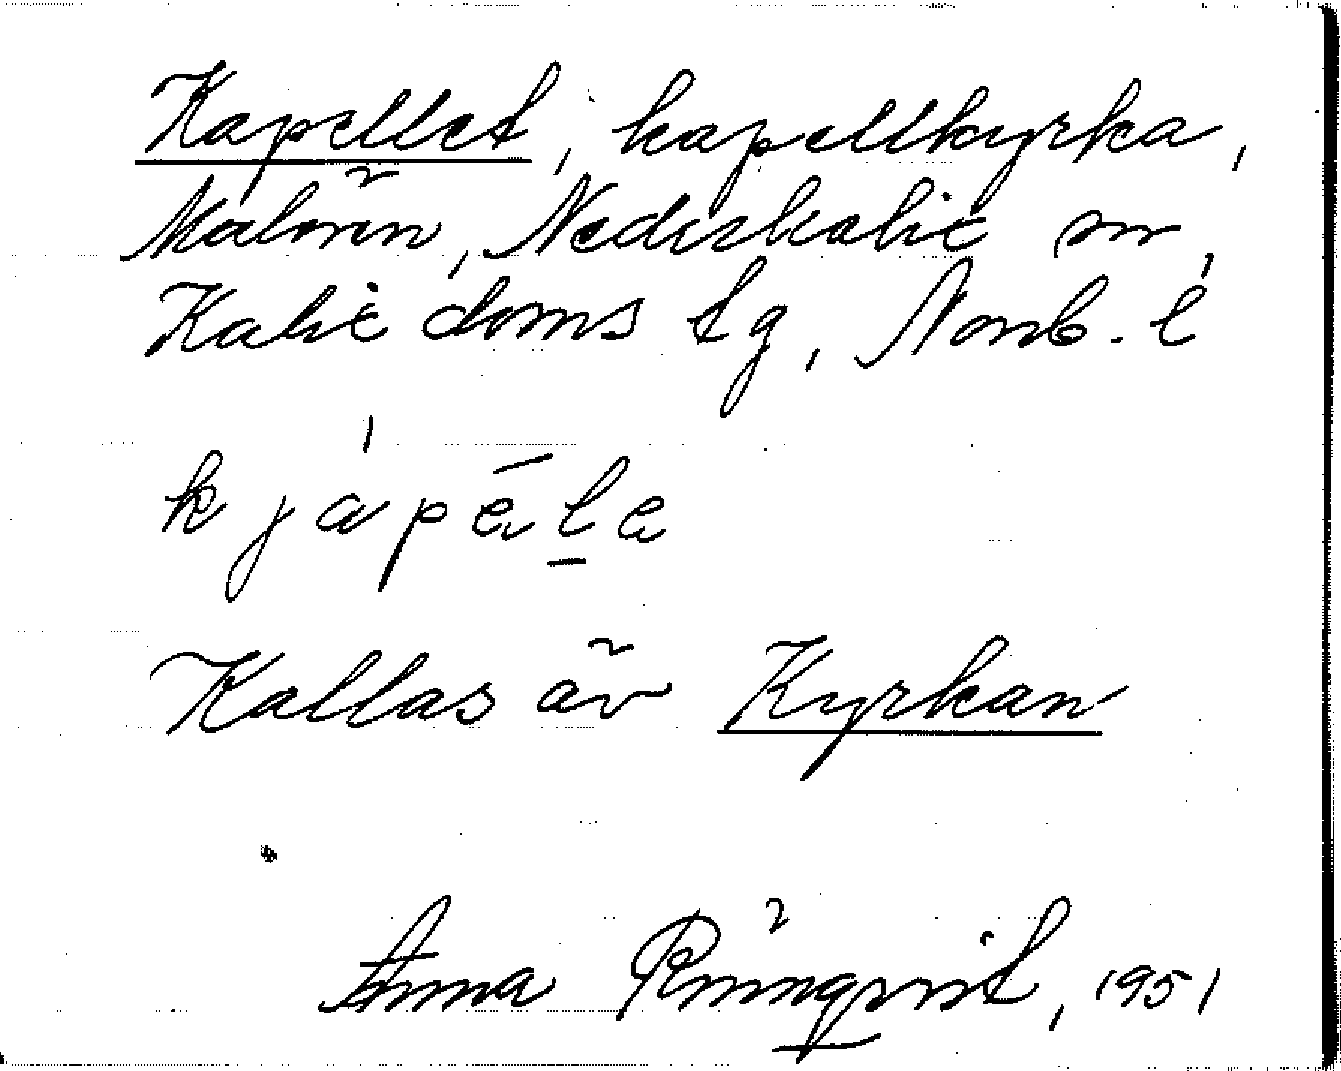 Kapellet, kapellkyrka,
Malören, Nederkalix sn,
Kalix doms tg, Norrb. l
Kallas äv Kyrkan
Anna Rönnqvist, 1951